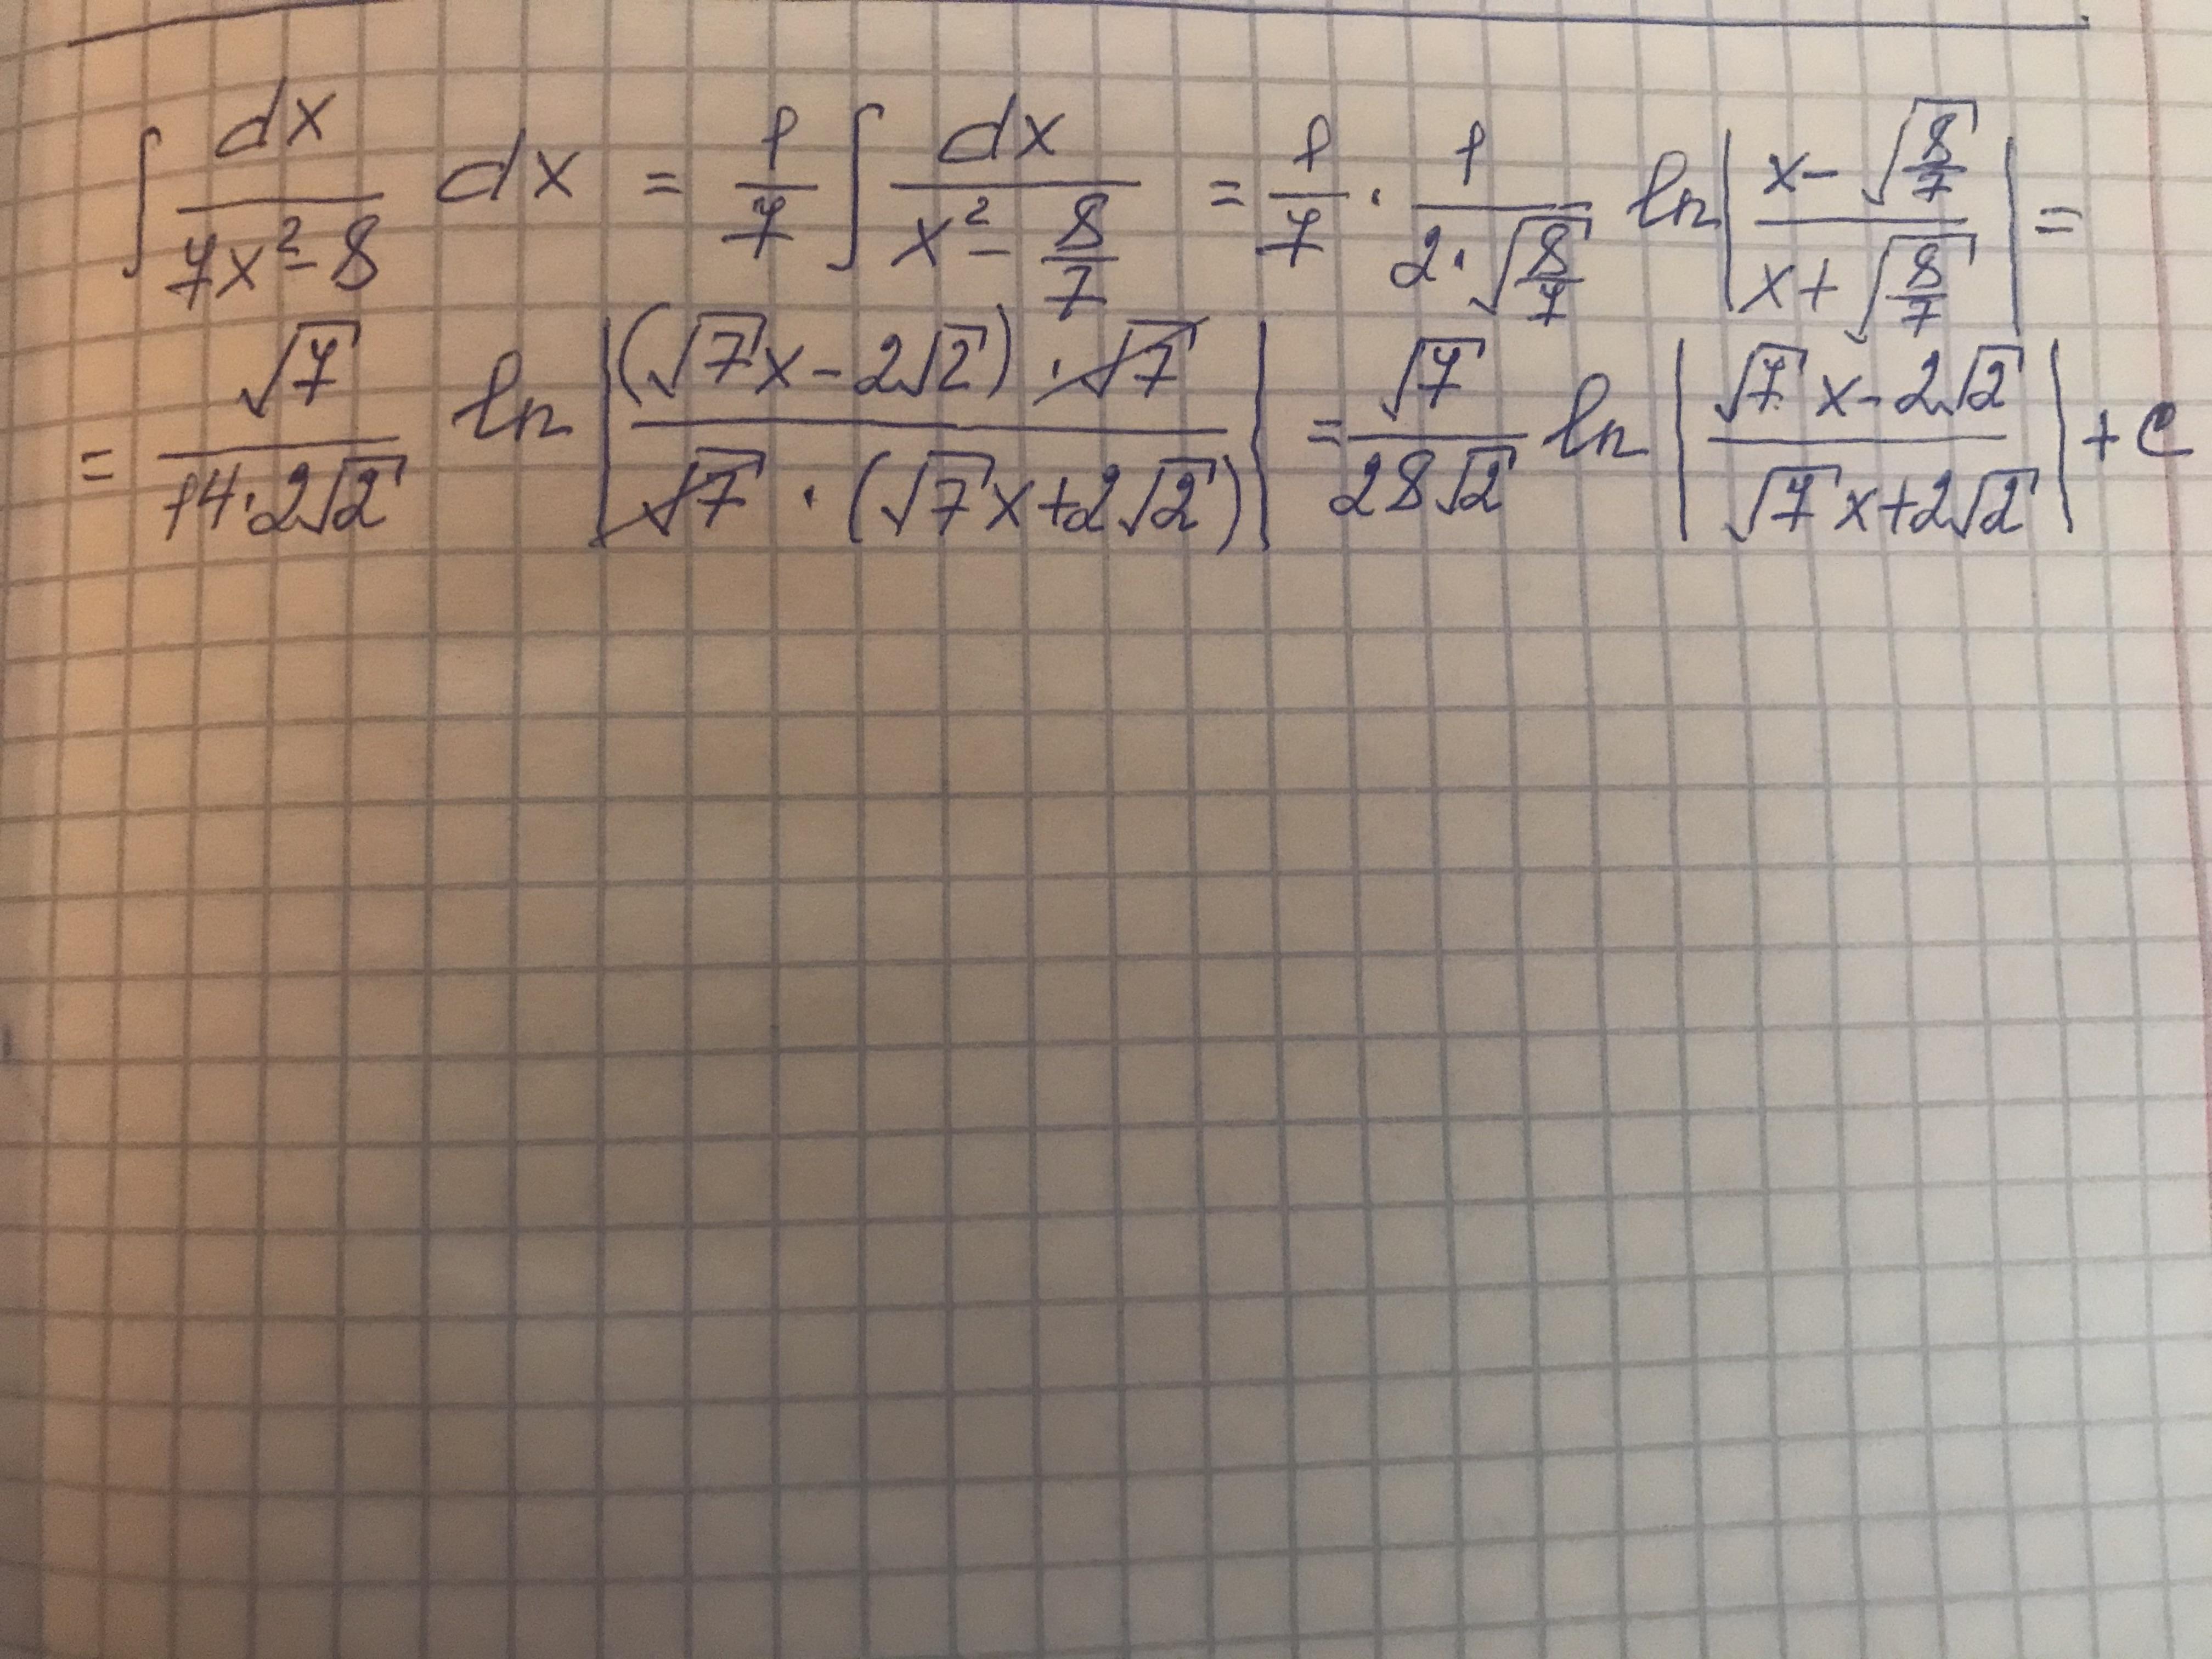 ∫ dx/(7x²-8) dx = 1/7 ∫ dx/(x² - 8/7) = 1/7 · 1/(2·√(8/7)) ln|(x-√(8/7))/(x+√(8/7))| =
= √7/(14·2√2) ln|((√7x-2√2)·√7)/(√7·(√7x+2√2))| = √7/(28√2) ln|(√7x-2√2)/(√7x+2√2)| + C